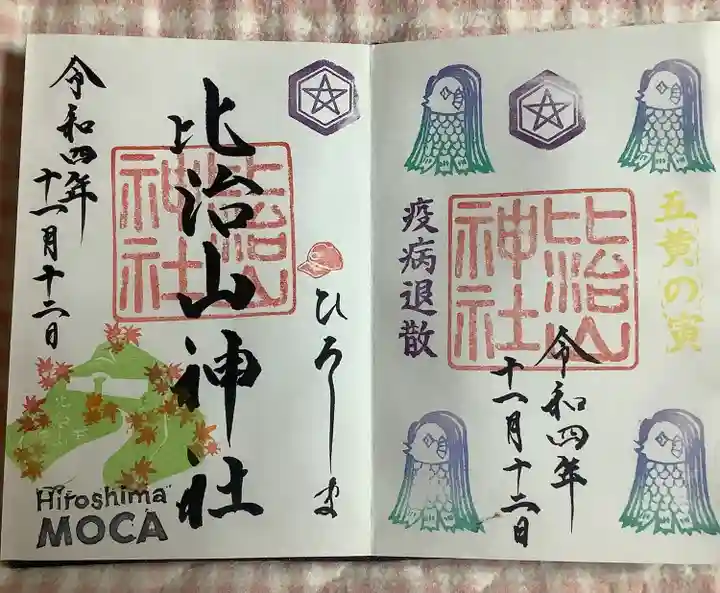 令和四年
十一月十二日
比治山神社
比治山
神社
ひろしま
Hiroshima
MOCA
五黄の寅
比治山
神社
疫病退散
令和四年
十一月十二日